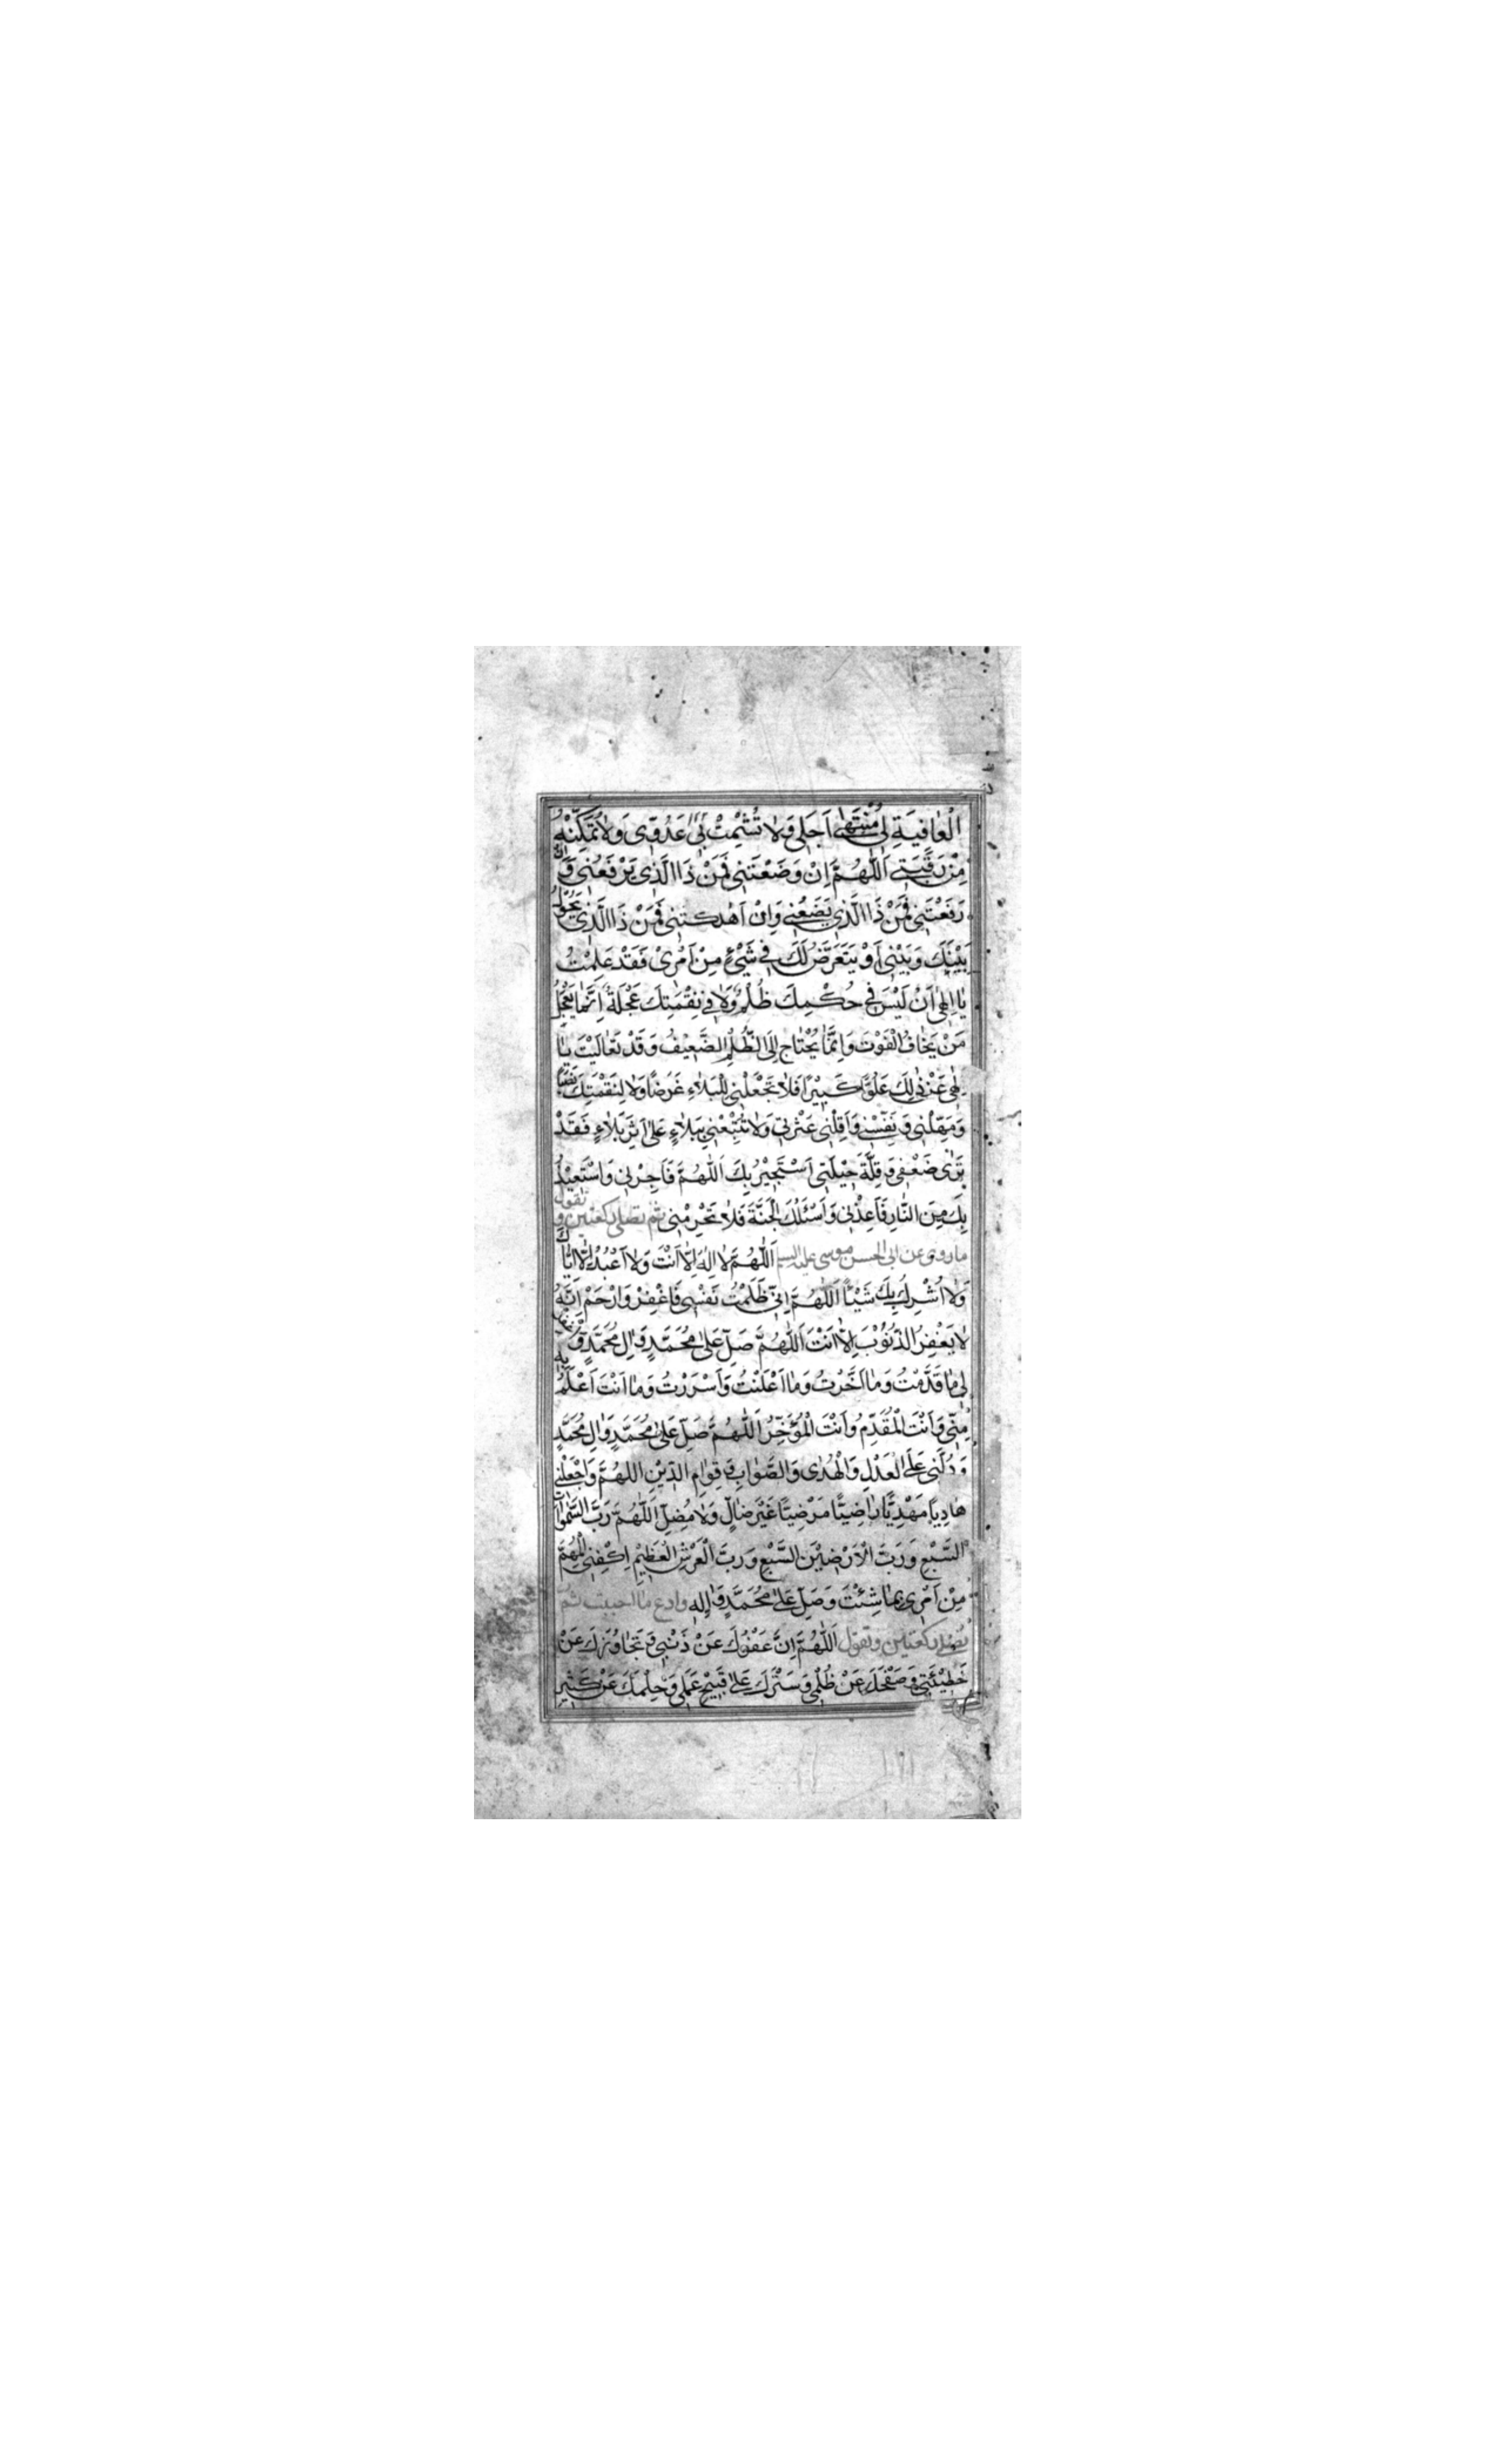 الْعٰافِيَةِ لِي مُنْتَهٰى اَجَلِي وَلٰا تُشْمِتْ بِي عَدُوِّي وَلٰا تُمَكِّنْهُ
مِنْ رَقَبَتِي اَللّٰهُمَّ اِنْ وَضَعْتَنِي فَمَنْ ذَا الَّذِي يَرْفَعُنِي وَاِنْ
رَفَعْتَنِي فَمَنْ ذَا الَّذِي يَضَعُنِي وَاِنْ اَهْلَكْتَنِي فَمَنْ ذَا الَّذِي يَحُولُ
بَيْنَكَ وَبَيْنِي اَوْ يَتَعَرَّضُ لَكَ فِي شَيْءٍ مِنْ اَمْرِي فَقَدْ عَلِمْتُ
يٰا اِلٰهِي اَنْ لَيْسَ فِي حُكْمِكَ ظُلْمٌ وَلٰا فِي نَقْمَتِكَ عَجَلَةٌ اِنَّمٰا يَعْجَلُ
مَنْ يَخٰافُ الْفَوْتَ وَاِنَّمٰا يُحْتٰاجُ اِلَى الظُّلْمِ الضَّعِيْفُ وَقَدْ تَعٰالَيْتَ يٰا
اِلٰهِي عَنْ ذٰلِكَ عُلُوًّا كَبِيْرًا فَلٰا تَجْعَلْنِي لِلْبَلٰاءِ غَرَضًا وَلٰا لِنَقْمَتِكَ نَصَبًا
وَمَهِّلْنِي وَنَفِّسْنِي وَاَقِلْنِي عَثْرَتِي وَلٰا تُتْبِعْنِي بِبَلٰاءٍ عَلٰى اَثَرِ بَلٰاءٍ فَقَدْ
تَرٰى ضَعْفِي وَقِلَّةَ حِيْلَتِي اَسْتَجِيْرُ بِكَ اَللّٰهُمَّ فَاَجِرْنِي وَاسْتَعِيْذُ
بِكَ مِنَ النّٰارِ فَاَعِذْنِي وَاَسْئَلُكَ الْجَنَّةَ فَلٰا تَحْرِمْنِي ثم تصلى ركعتين وتقول
ماروى عن ابى الحسن موسى عليه السلم اَللّٰهُمَّ لٰا اِلٰهَ اِلّٰا اَنْتَ وَلٰا اَعْبُدُ اِلّٰا اِيّٰاكَ
وَلٰا اُشْرِكُ بِكَ شَيْئًا اَللّٰهُمَّ اِنِّي ظَلَمْتُ نَفْسِي فَاغْفِرْ وَارْحَمْ اِنَّهُ
لٰا يَغْفِرُ الذُّنُوْبَ اِلّٰا اَنْتَ اَللّٰهُمَّ صَلِّ عَلٰى مُحَمَّدٍ وَاٰلِ مُحَمَّدٍ وَاغْفِرْ
لِي مٰا قَدَّمْتُ وَمٰا اَخَّرْتُ وَمٰا اَعْلَنْتُ وَاَسْرَرْتُ وَمٰا اَنْتَ اَعْلَمُ بِهِ
مِنِّي وَاَنْتَ الْمُقَدِّمُ وَاَنْتَ الْمُؤَخِّرُ اَللّٰهُمَّ صَلِّ عَلٰى مُحَمَّدٍ وَاٰلِ مُحَمَّدٍ
وَدُلَّنِي عَلَى الْعَدْلِ وَالْهُدٰى وَالصَّوٰابِ وَقِوٰامِ الدِّيْنِ اللّٰهُمَّ وَاجْعَلْنِي
هٰادِيًا مَهْدِيًّا رٰاضِيًا مَرْضِيًّا غَيْرَ ضٰالٍّ وَلٰا مُضِلٍّ اَللّٰهُمَّ رَبَّ السَّمٰوٰاتِ
السَّبْعِ وَرَبَّ الْاَرَضِيْنَ السَّبْعِ وَرَبَّ الْعَرْشِ الْعَظِيْمِ اِكْفِنِي الْمُهِمَّ
مِنْ اَمْرِي بِمٰا شِئْتَ وَصَلِّ عَلٰى مُحَمَّدٍ وَاٰلِهِ وادع ما احببت ثم
تصلى ركعتين وتقول اَللّٰهُمَّ اِنَّ عَفْوَكَ عَنْ ذَنْبِي وَتَجٰاوُزَكَ عَنْ
خَطِيْئَتِي وَصَفْحَكَ عَنْ ظُلْمِي وَسَتْرَكَ عَلٰى قَبِيْحِ عَمَلِي وَحِلْمَكَ عَنْ كَثِيْرِ